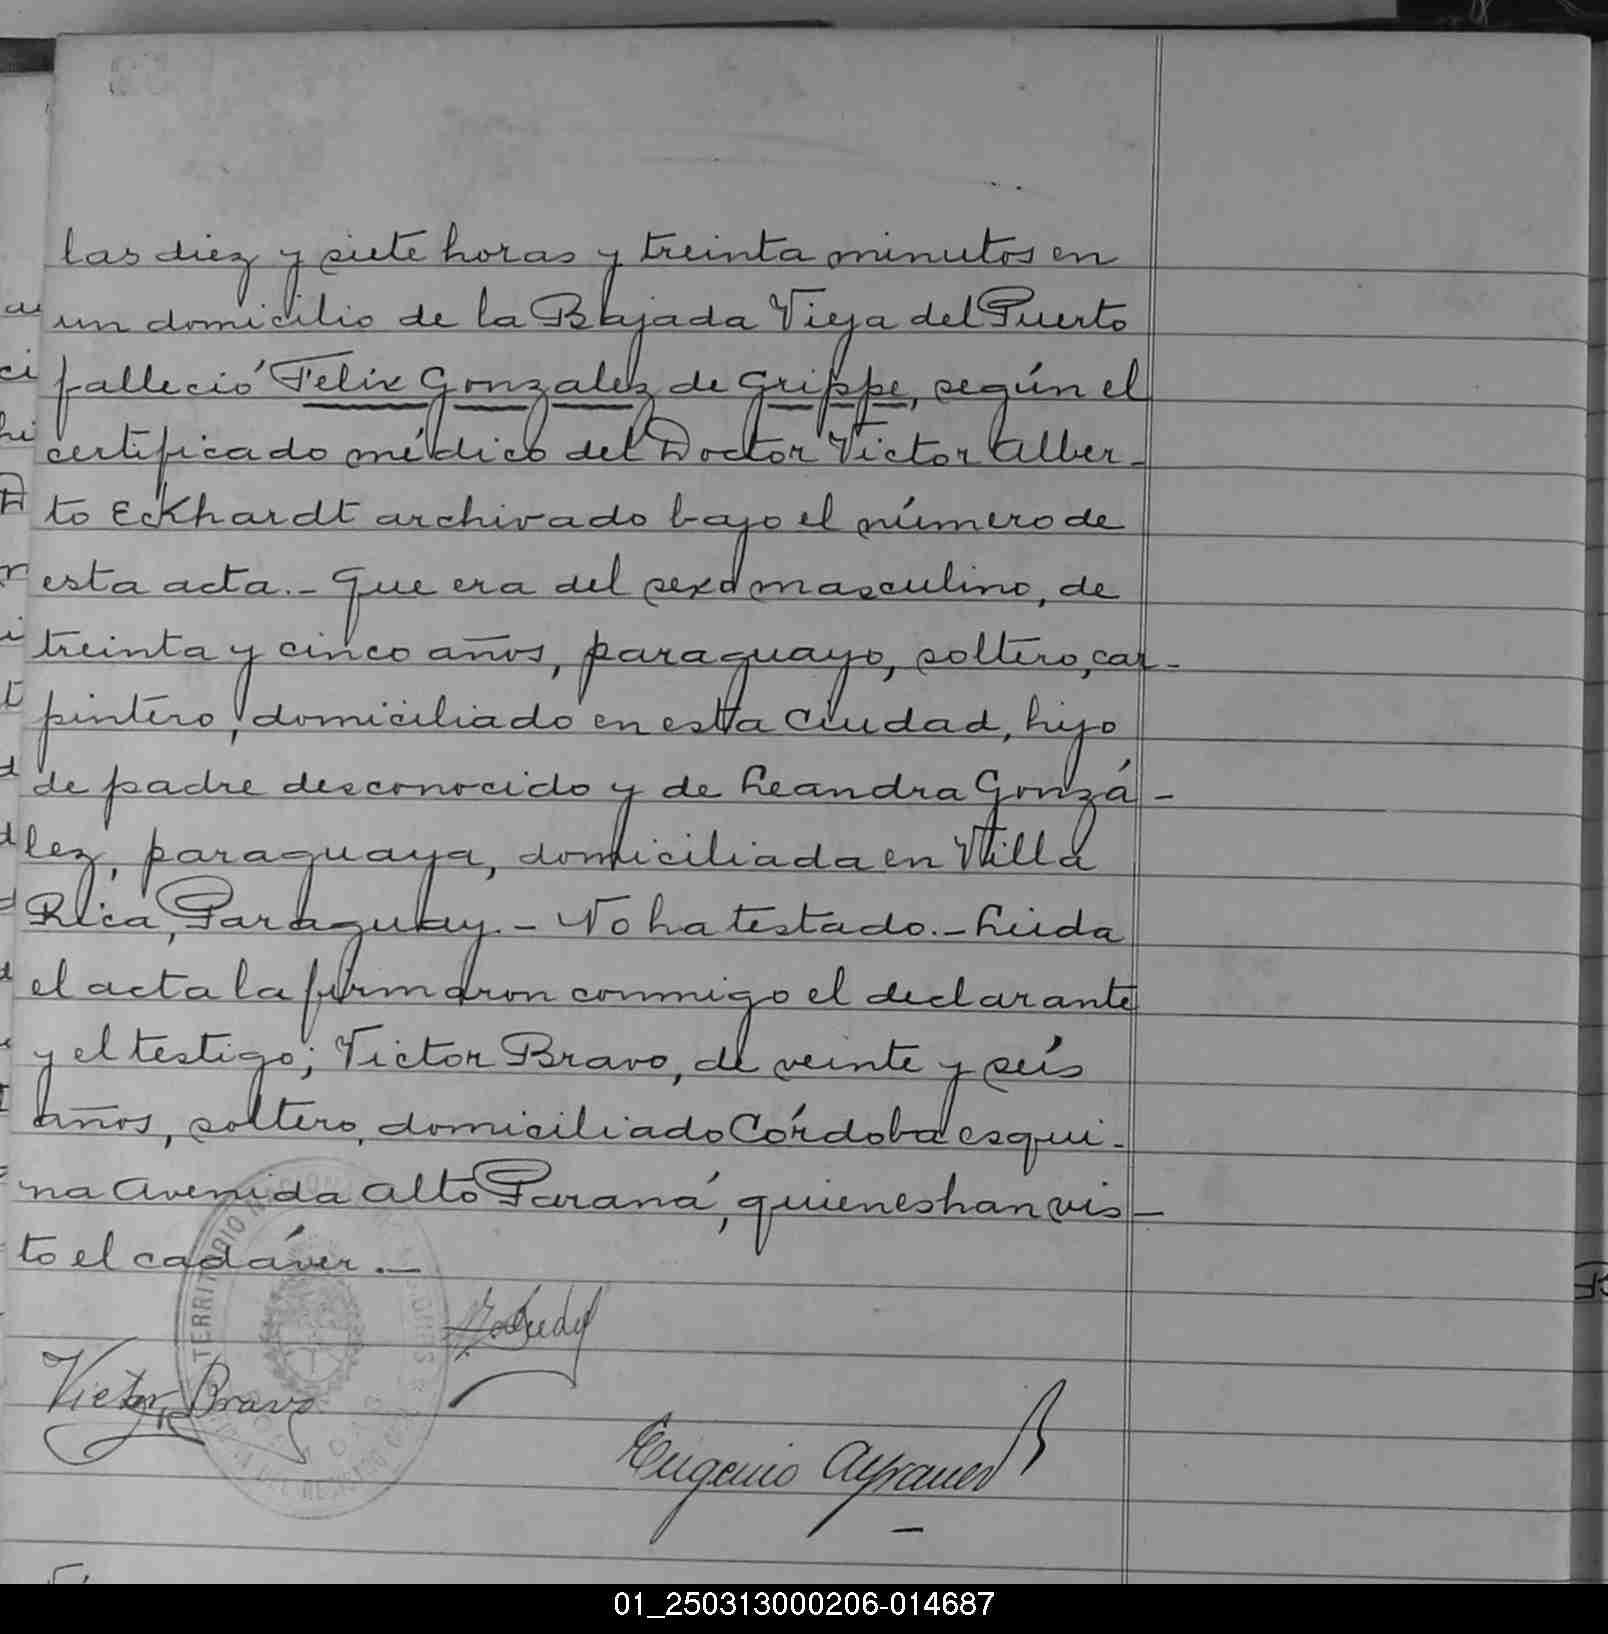 las diez y siete horas y treinta minutos en
un domicilio de la Bajada Vieja del Puerto
falleció Felix Gonzalez de Grippe, según el
certificado médico del Doctor Victor Alber-
to Eckhardt archivado bajo el número de
esta acta.- Que era del sexo masculino, de
treinta y cinco años, paraguayo, soltero, car-
pintero, domiciliado en esta Ciudad, hijo
de padre desconocido y de Leandra Gonzá-
lez, paraguaya, domiciliada en Villa
Rica, Paraguay.- No ha testado.- Leida
el acta la firmaron conmigo el declarante
y el testigo; Victor Bravo, de veinte y seís
años, soltero, domiciliado Córdoba esqui-
na Avenida Alto Paraná, quienes han vis-
to el cadáver.-
TERRITORIO
Victor Bravo
Eugenio
01_250313000206-014687